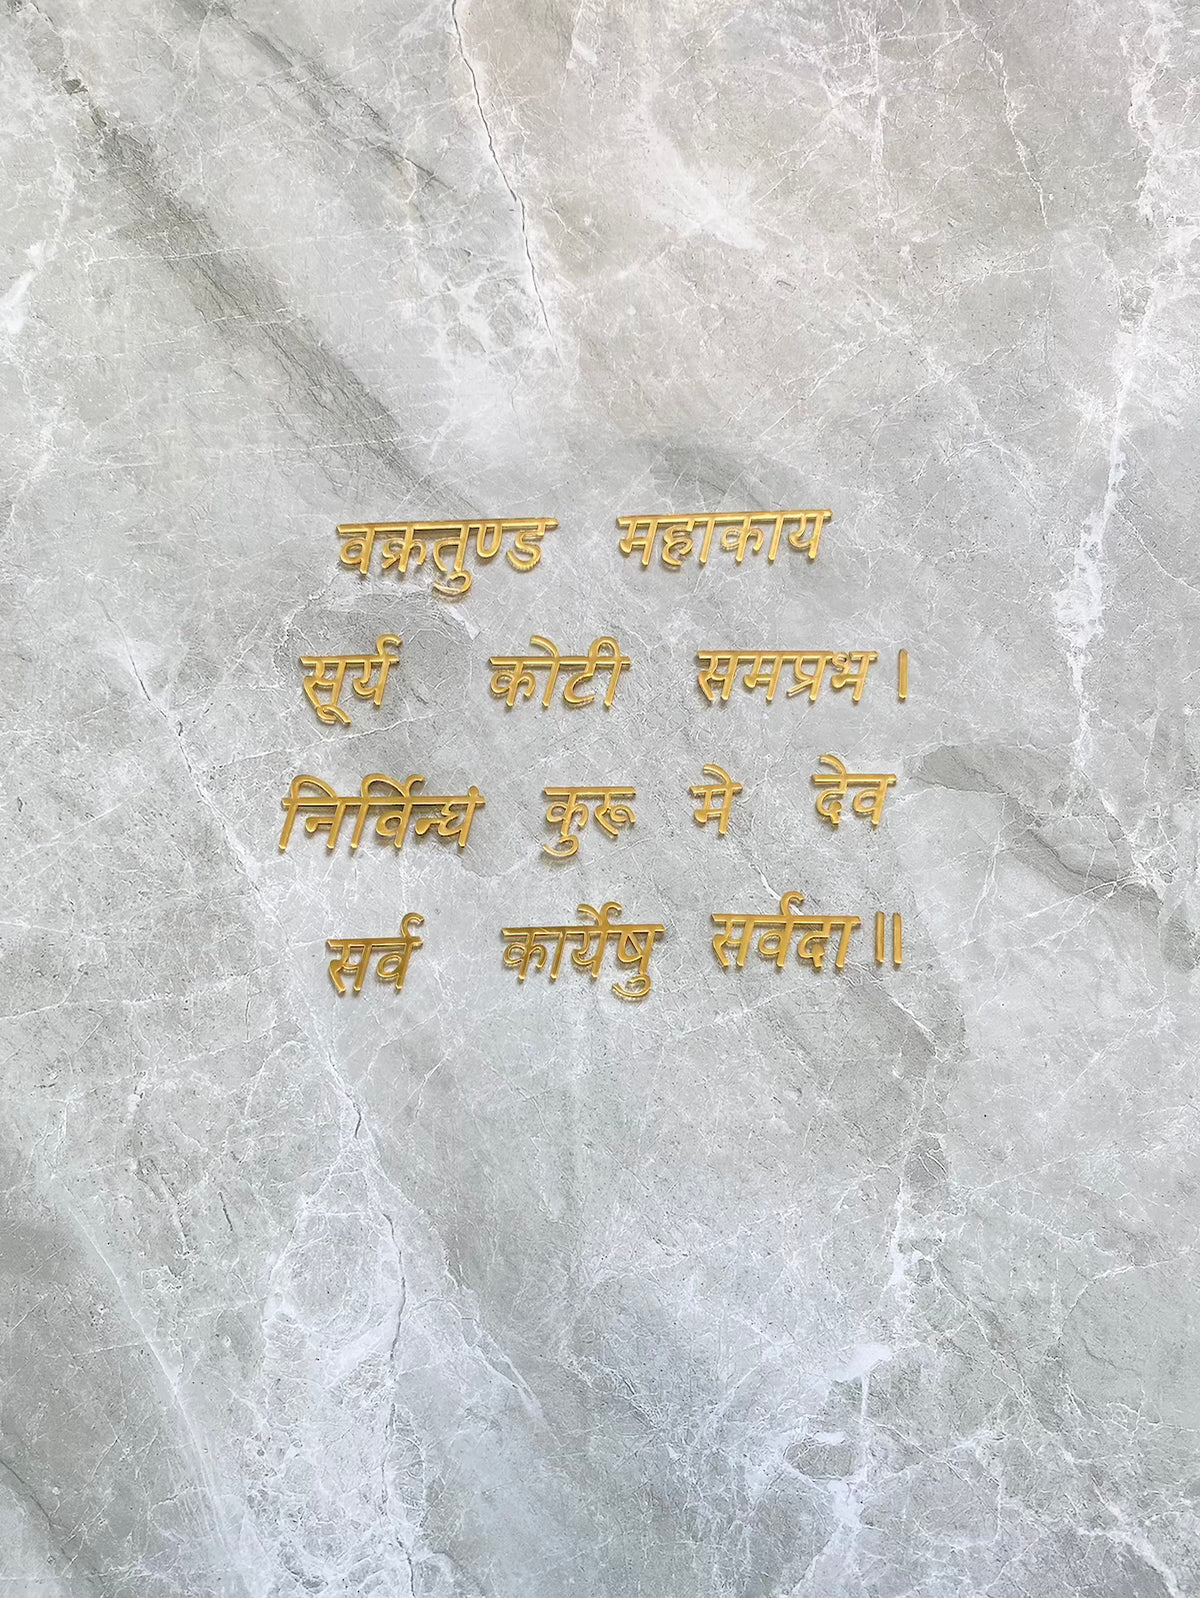 वक्रतुण्ड महाकाय
सूर्य कोटी समप्रभ ।
निर्विन्घं कुरू मे देव
सर्व कार्येषु सर्वदा ॥